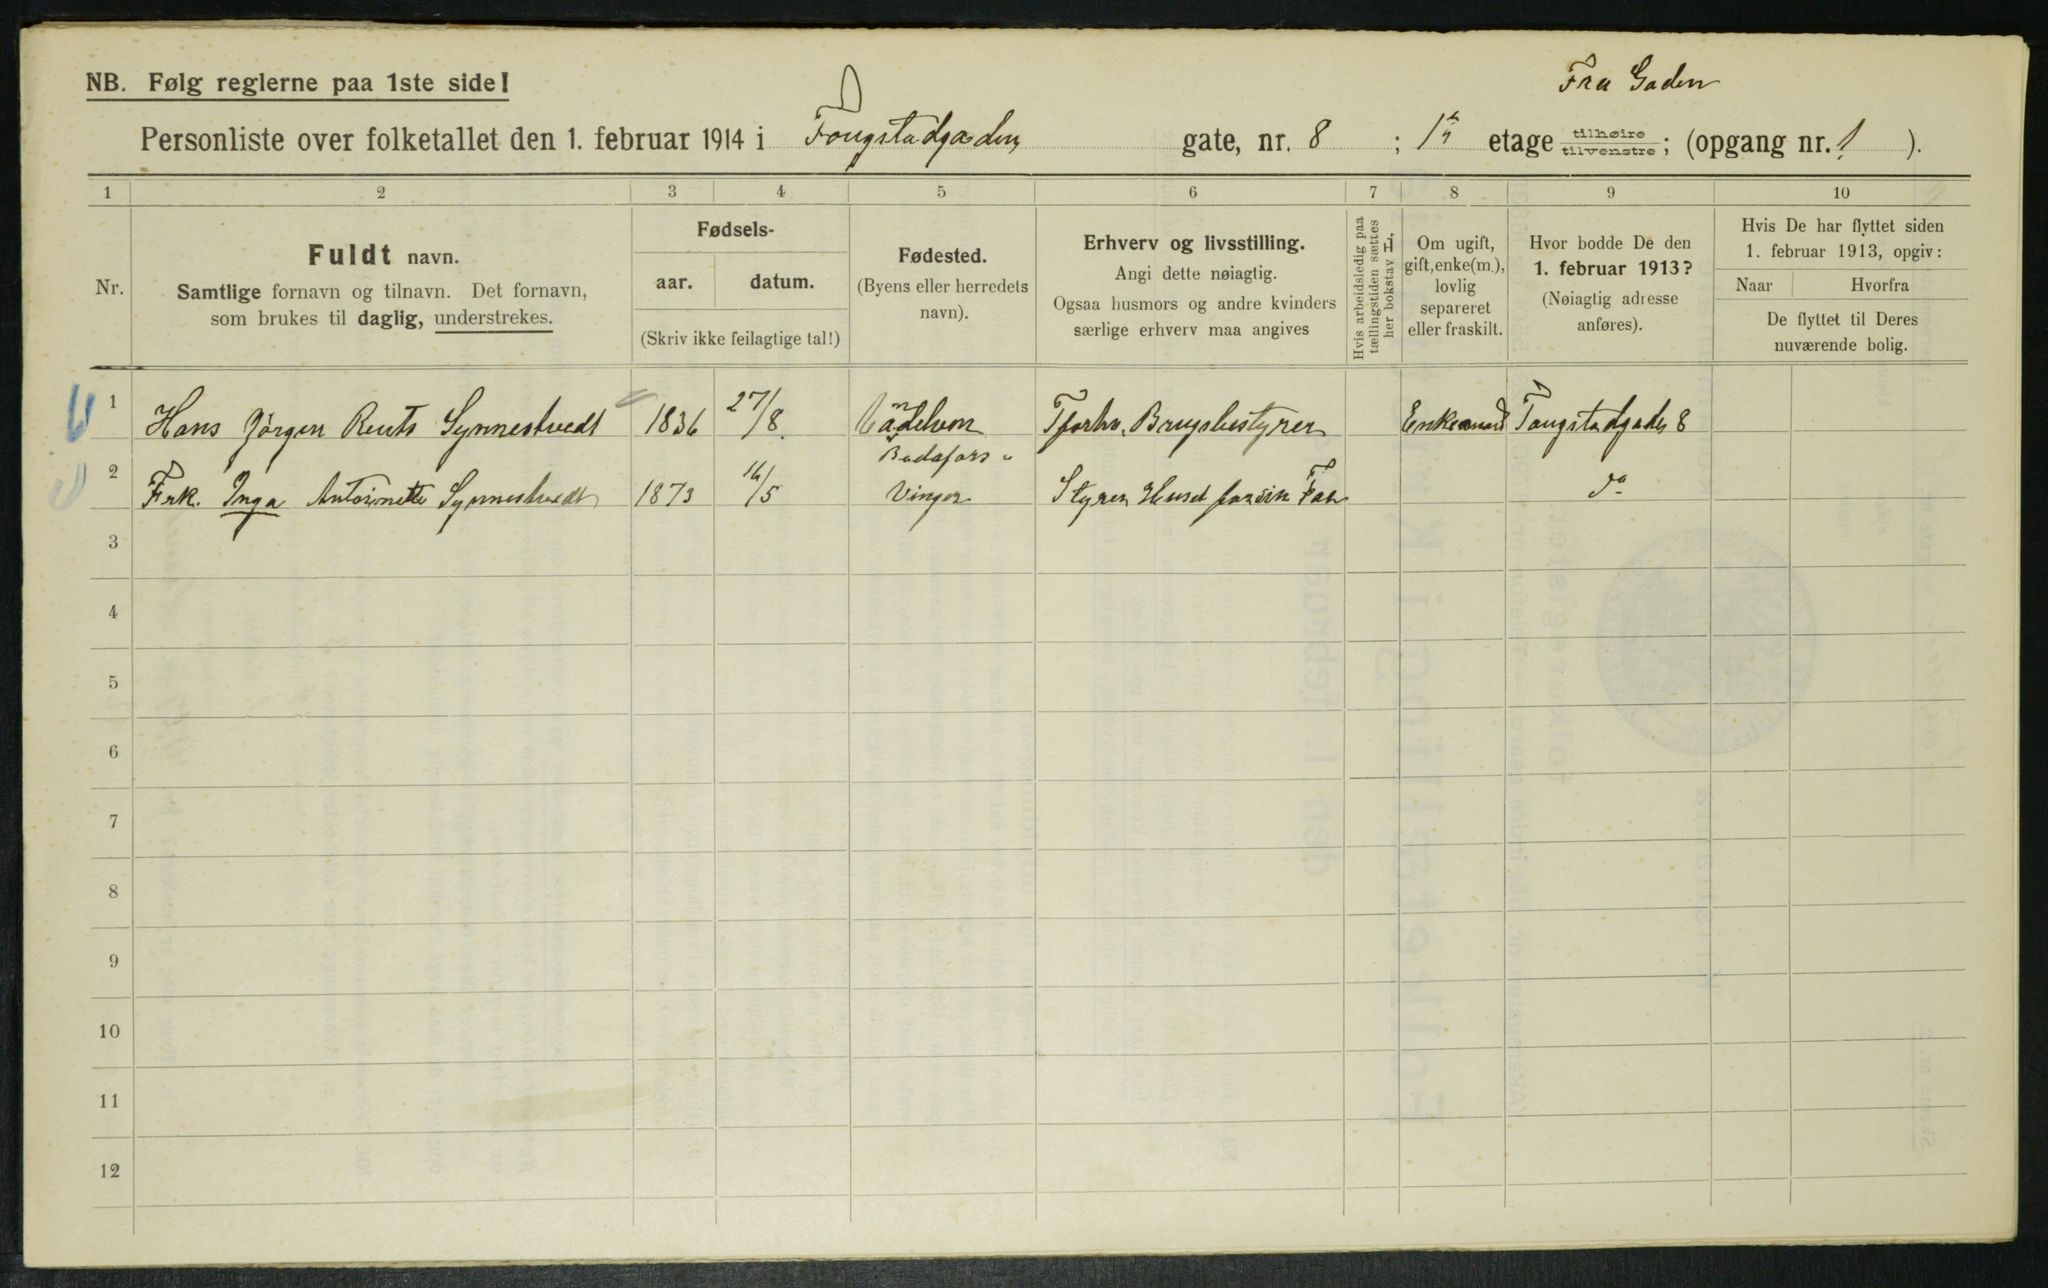 Fra Gaden
NB. Følg reglerne paa 1ste side!
Personliste over folketallet den 1. februar 1914 i Fougstadgaden gate, nr. 8 ; 1ste etage tilhøire tilvenstre; (opgang nr. 1 ).
1 2 3 4 5 6 7 8 9 10
Nr.
Fuldt navn.
Samtlige fornavn og tilnavn. Det fornavn,
som brukes til daglig, understrekes.
Fødsels-
aar. datum.
(Skriv ikke feilagtige tal!)
Fødested.
(Byens eller herredets
navn).
Erhverv og livsstilling.
Angi dette nøiagtig.
Ogsaa husmors og andre kvinders
særlige erhverv maa angives
Hvis arbeidsledig paa
tællingstiden sættes
her bokstav L,
Om ugift,
gift, enke(m.),
lovlig
separeret
eller fraskilt.
Hvor bodde De den
1. februar 1913?
(Nøiagtig adresse
anføres).
Hvis De har flyttet siden
1. februar 1913, opgiv:
Naar Hvorfra
De flyttet til Deres
nuværende bolig.
1 Hans Jørgen Reuts Synnestvedt 1836 27/8 Brugsbestyrer Enkemand Fougstadgaden 8
2 Frk. Inga Antoinette Synnestvedt 1873 16/5 Vinger Styrer Huset for sin Far do
3
4
5
6
7
8
9
10
11
12